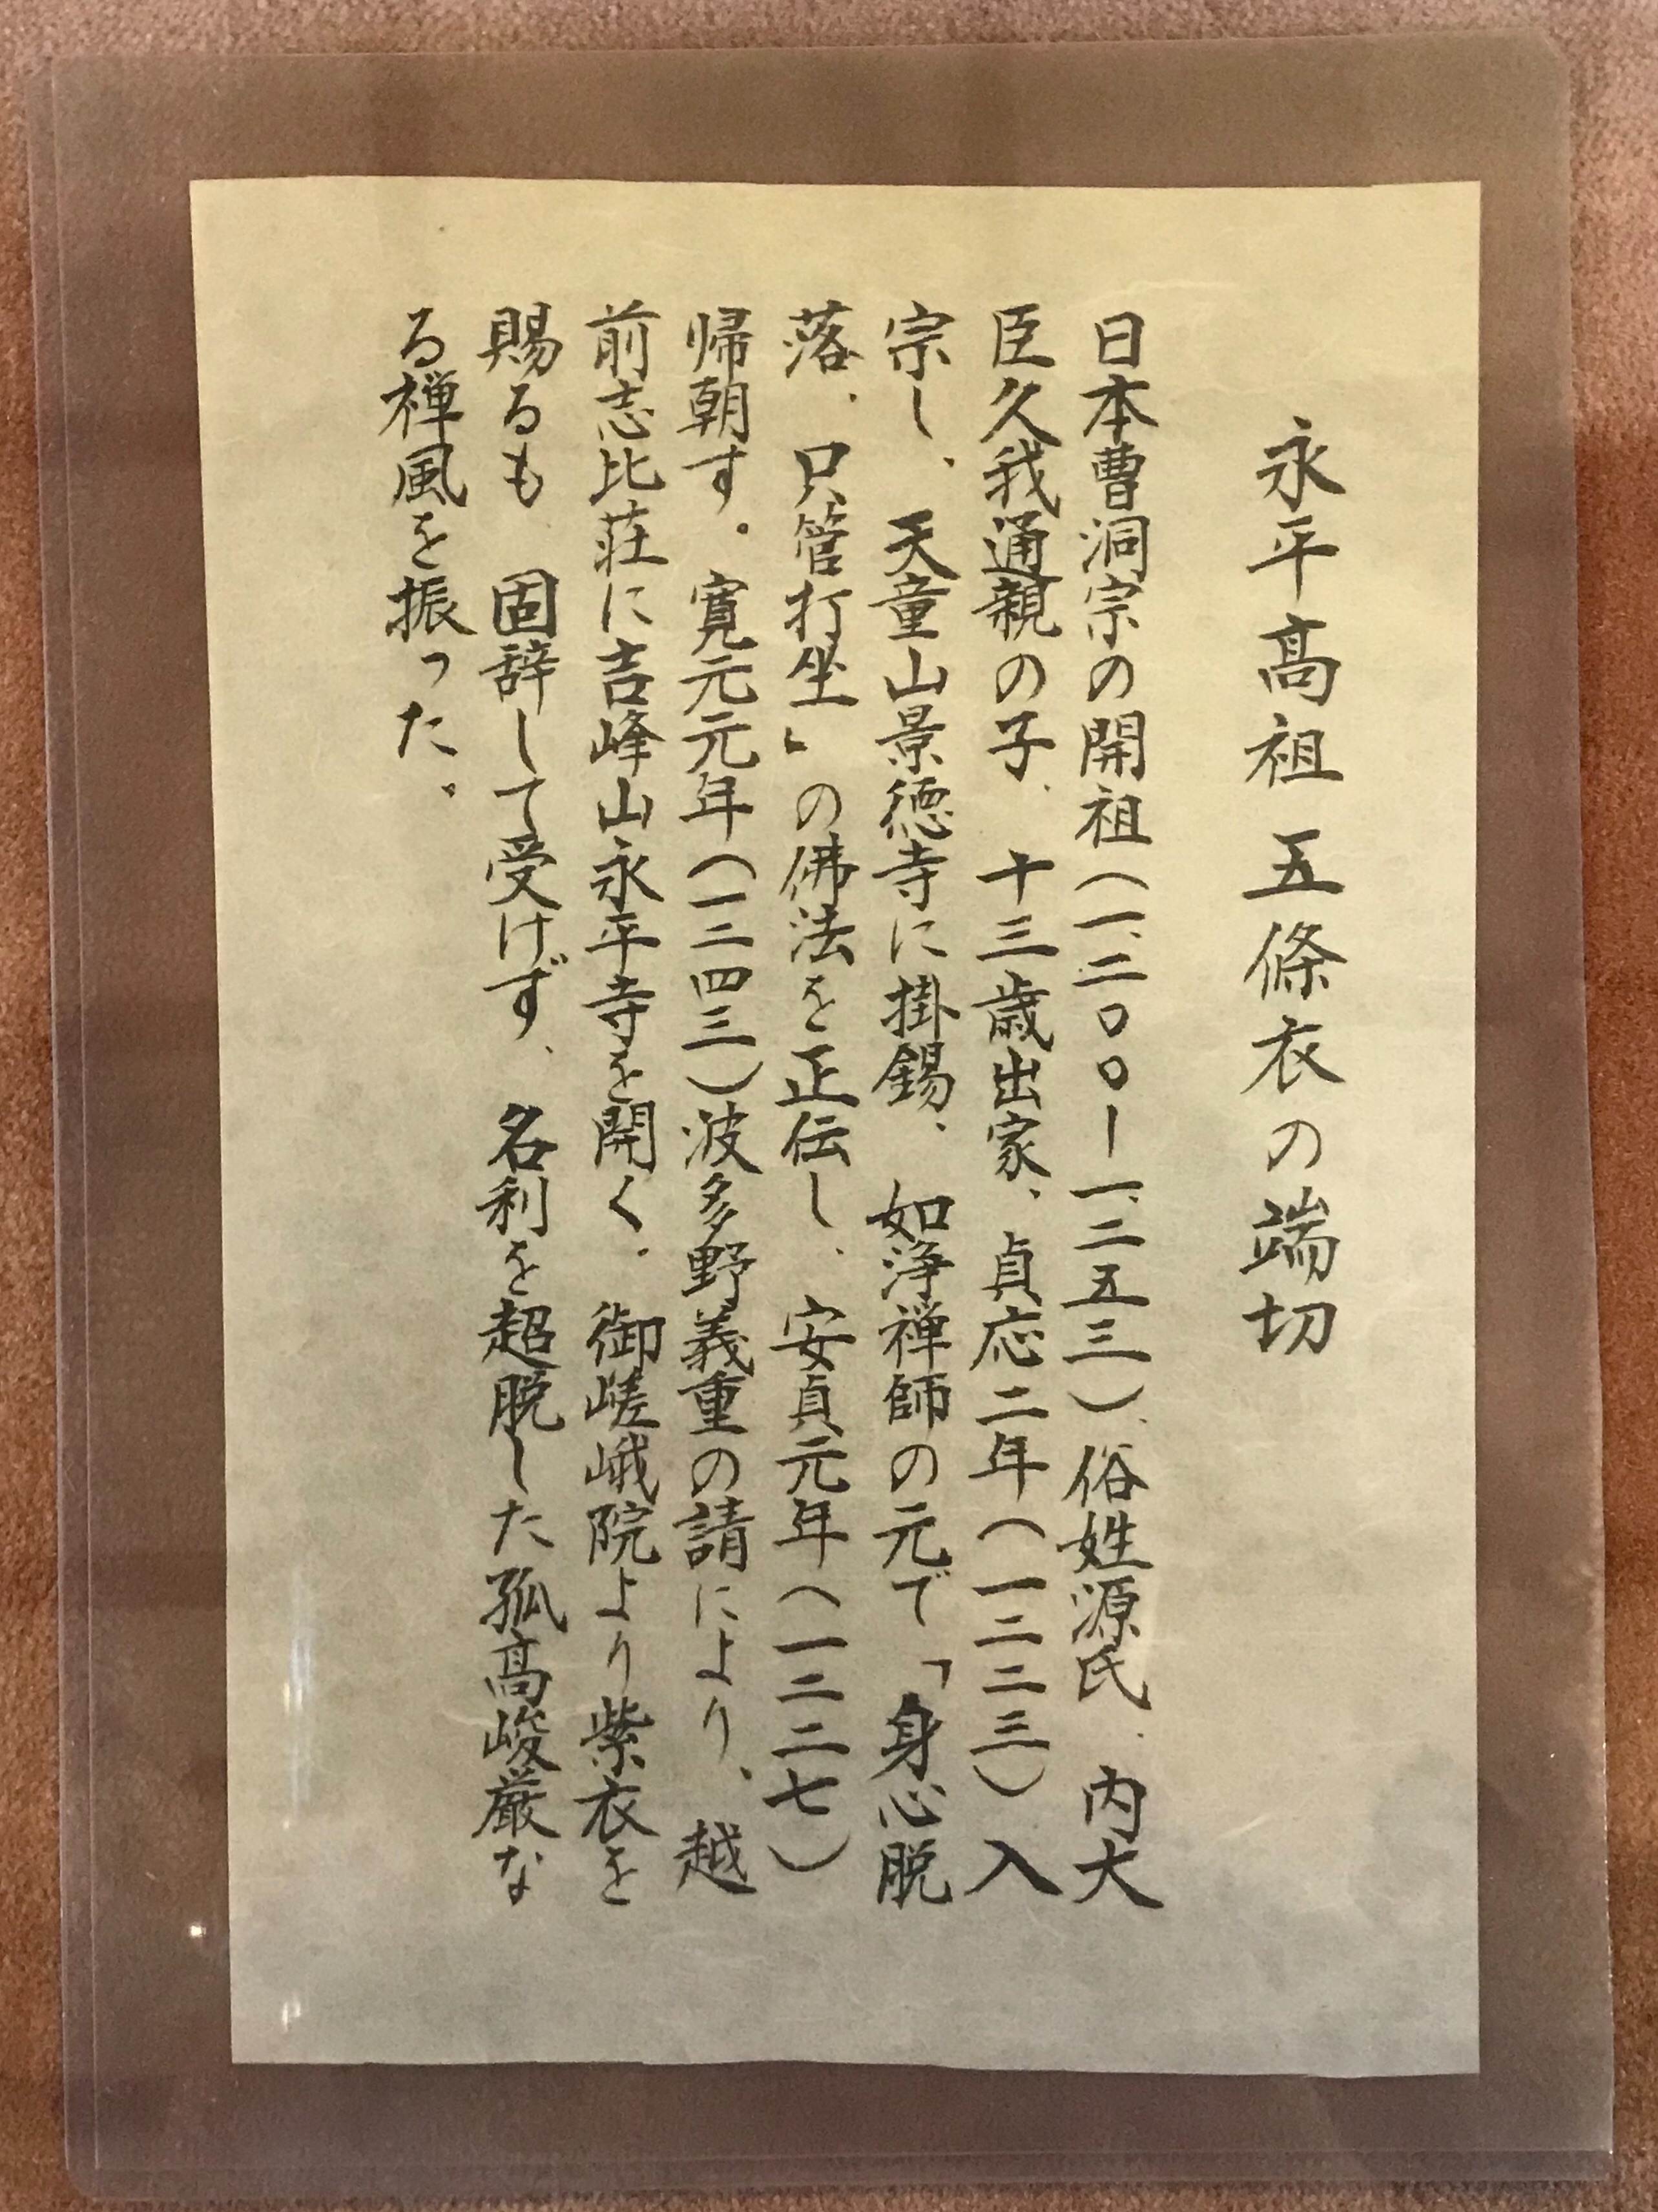 永平髙祖 五條衣の端切
日本曹洞宗の開祖（一、二〇〇ー一、二五三）、俗姓源氏、内大
臣久我通親の子、十三歳出家、貞応二年（一二二三）入
宗し、天童山景徳寺に掛錫、如浄禅師の元で「身心脱
落、只管打坐」の佛法を正伝し、安貞元年（一二二七）
帰朝す。寛元元年（一二四三）波多野義重の請により、越
前志比荘に吉峰山永平寺を開く。御嵯峨院より紫衣を
賜るも 固辞して受けず、名利を超脱した孤髙峻厳な
る禅風を振った。